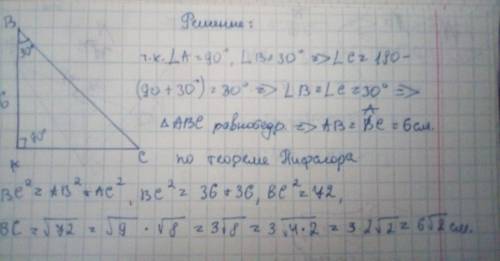 Решение:
B
30°
т.к. ∠A = 90°, ∠B = 30° => ∠C = 180 -
(90 + 30°) = 30° => ∠B = ∠C = 30° =>
6
A
△ABC равнобедр. => AB = BC = 6 см.
90°
A
C
по теореме Пифагора
BC² = AB² + AC², BC² = 36 + 36, BC² = 72,
BC = √72 = √9 · √8 = 3√8 = 3√4·2 = 3·2√2 = 6√2 см.